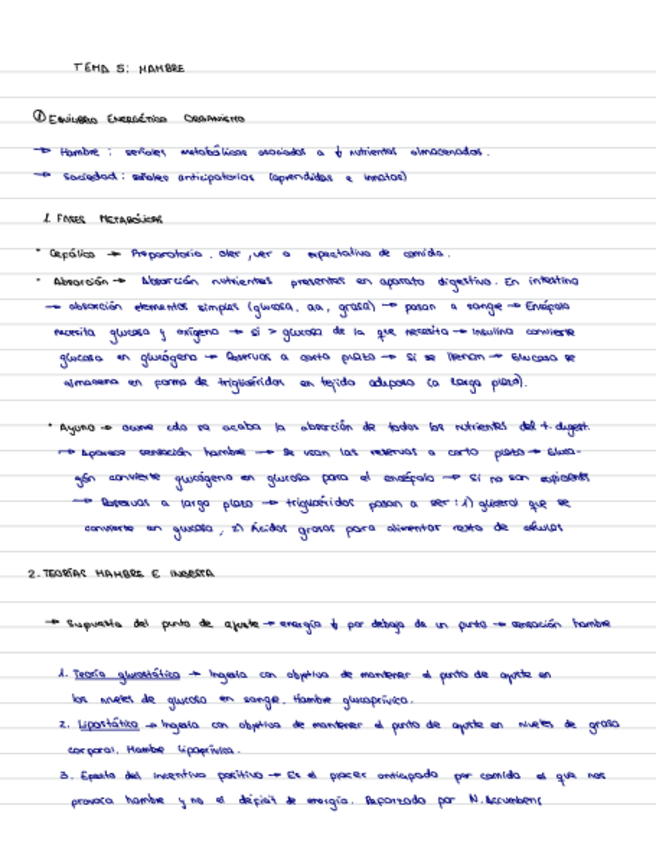 TEMA 5: HAMBRE
① EQUILIBRIO ENERGÉTICO ORGANISMO
→ Hambre : señales metabólicas asociadas a ↓ nutrientes almacenados.
→ Saciedad : señales anticipatorias (aprendidas e innatas)
1. FASES METABÓLICAS
• Cefálica → Preparatoria. oler, ver o expectativa de comida.
• Absorción → Absorción nutrientes presentes en aparato digestivo. En intestino
→ absorción elementos simples (glucosa, aa, grasa) → pasan a sangre → Encéfalo
necesita glucosa y oxígeno → si > glucosa de la que necesita → Insulina convierte
glucosa en glucógeno → Reservas a corto plazo → Si se llenan → Glucosa se
almacena en forma de triglicéridos en tejido adiposo (a largo plazo).
• Ayuno → ocurre cdo se acaba la absorción de todos los nutrientes del t. digest.
→ Aparece sensación hambre → Se usan las reservas a corto plazo → Gluca-
gón convierte glucógeno en glucosa para el encéfalo → Si no son suficientes
→ Reservas a largo plazo → triglicéridos pasan a ser : 1) glicerol que se
convierte en glucosa, 2) Ácidos grasos para alimentar resto de células
2. TEORÍAS HAMBRE E INGESTA
→ Supuesto del punto de ajuste → energía ↓ por debajo de un punto → sensación hambre
1. Teoría glucostática → Ingesta con objetivo de mantener el punto de ajuste en
los niveles de glucosa en sangre. Hambre glucoprívica.
2. Lipostática → Ingesta con objetivo de mantener el punto de ajuste en niveles de grasa
corporal. Hambre lipoprívica.
3. Efecto del incentivo positivo → Es el placer anticipado por comida el que nos
provoca hambre y no el déficit de energía. Reforzado por N. Accumbens